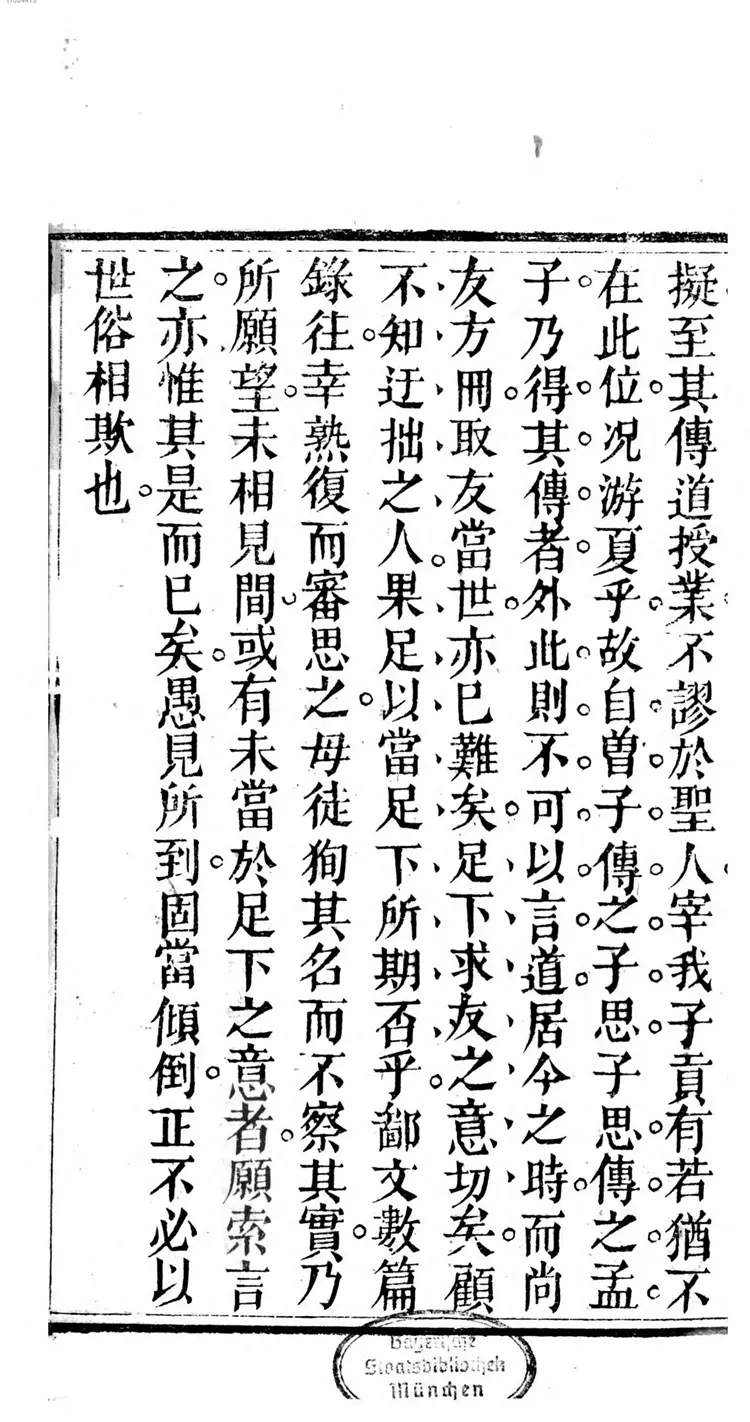 擬至其傳道授業不謬於聖人宰我子貢有若猶不
在此位况游夏乎故自曽子傳之子思子思傳之孟
子乃得其傳者外此則不可以言道居今之時而尚
友方冊取友當世亦已難矣足下求友之意切矣顧
不知迂拙之人果足以當足下所期否乎鄙文數篇
錄往幸熟復而審思之毋徒狥其名而不察其實乃
所願望未相見間或有未當於足下之意者願索言
之亦惟其是而已矣愚見所到固當傾倒正不必以
世俗相欺也
Bayerische
Staatsbibliothek
München